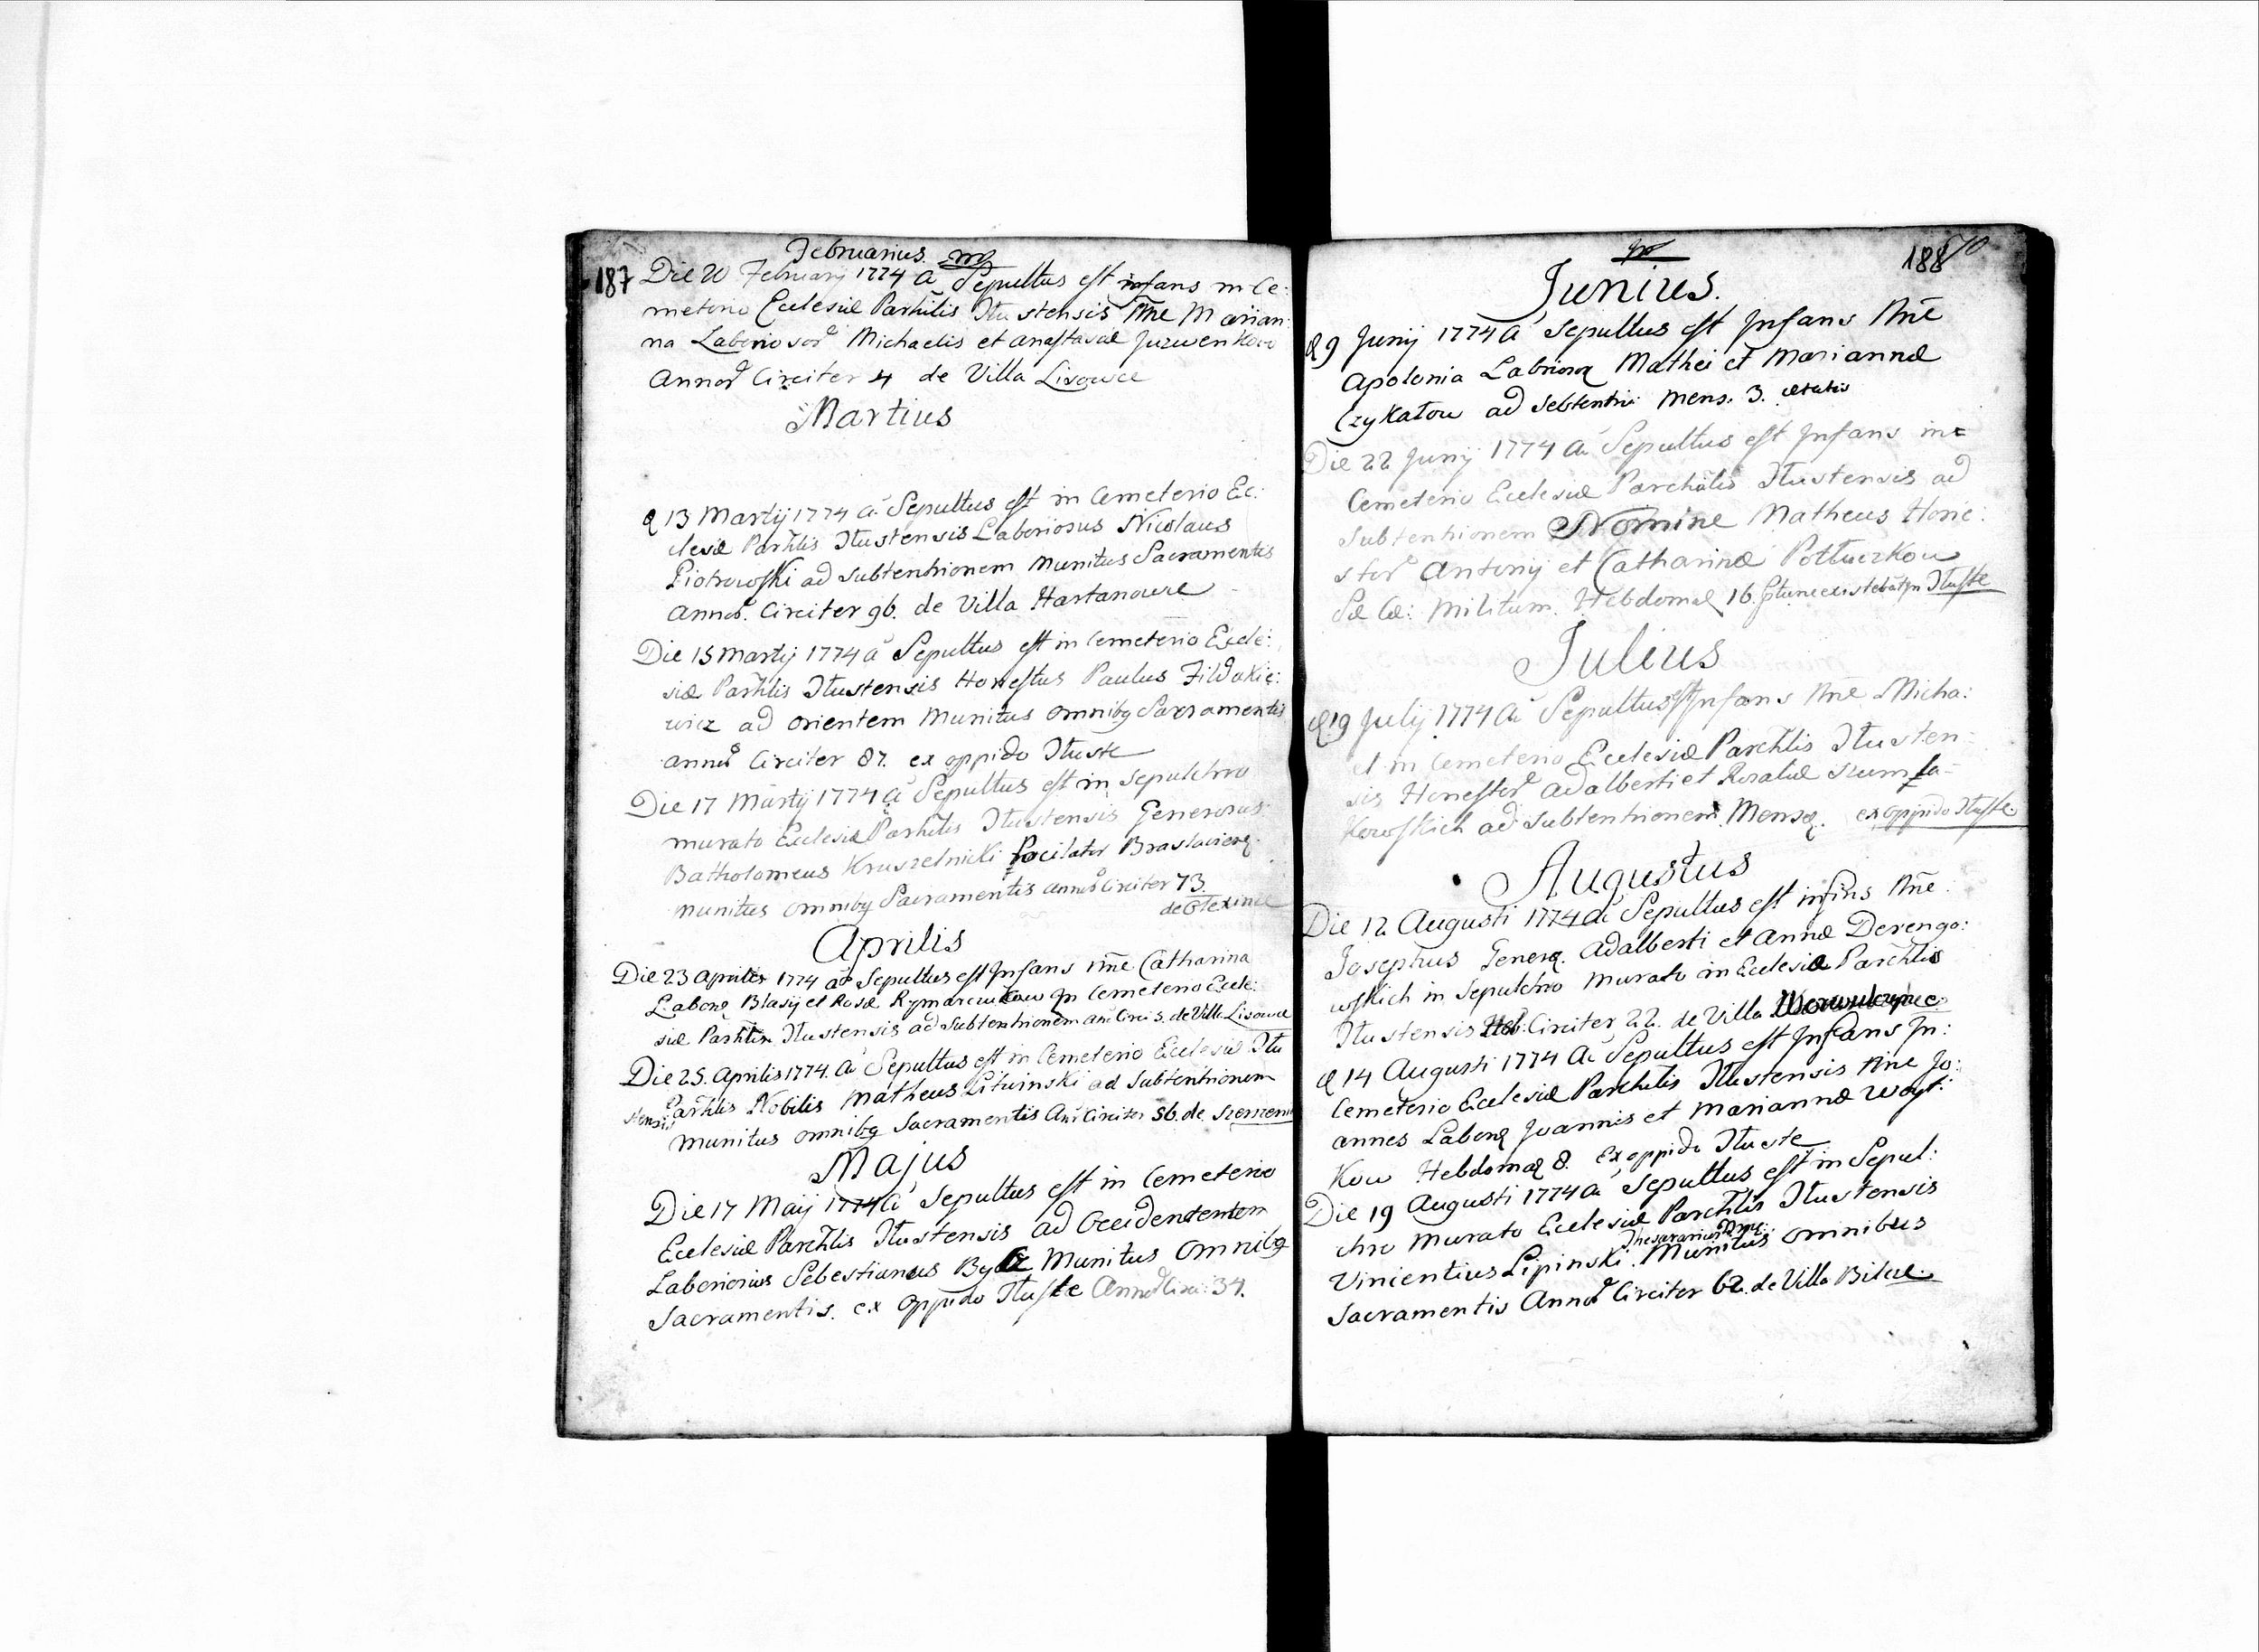 Februarius.
187 Die 20 Februarij 1774 a Sepultus est infans in Ce:
meterio Ecclesiæ Parhilis Tłustensis Nne Marian:
na Laborioсor Michaelis et anastasiæ Juzwenkow
Annor Circiter 4 de Villa Lisowce
Martius
d 13 Martij 1774 a Sepultus est in Cemeterio Ec:
clesiæ Parhlis Tłustensis Laboriosus Nicolaus
Piotrowski ad subtentrionem munitus Sacramentis
annor. Circiter 96. de Villa Hartanowce
Die 15 Martij 1774 a Sepultus est in Cemeterio Eccle:
siæ Parhlis Tłustensis Honestus Paulus Fildakie:
wicz ad orientem munitus omnibq Sacramentis
annor Circiter 87. ex oppido Tłuste
Die 17 Martij 1774 a Sepultus est in sepulchro
murato Ecclesiæ Parhilis Tłustensis Generosus
Batholomeus Kruszelnicki
munitus omnibq Sacramentis annor Circiter 73.
Aprilis
Die 23 aprilis 1774 a Sepultus est Infans Nne Catharina
Labore Blasij et Rosæ In Cemeterio Eccle:
siæ Parhlis Tłustensis ad Subtentrionem an Circi 3. de Villa Lisowce
Die 25. aprilis 1774. a Sepultus est in Cemeterio Ecclesiæ Tłu
stensis Parhlis Nobilis Matheus Litwinski ad Subtentrionem
munitus omnibq Sacramentis An Circiter 56. de
Majus
Die 17 Maij 1774 a Sepultus est in Cemeterio
Ecclesiæ Parchlis Tłustensis ad Occidententem
Laboriosus Sebestianus Munitus Omnibq
Sacramentis. ex oppido Tłuste Annor Circi: 34.
188 70
Junius.
d 9 Junij 1774 a Sepultus est Infans Nne
Apolonia Mathei et Mariannæ
Czykałow ad Sebtentrio Mens. 3. ætatis
Die 22 Junij 1774 a Sepultus est Infans in
Cemeterio Ecclesiæ Parchalis Tłustensis ad
subtentrionem Nomine Matheus Hone:
stor Antonij et Catharinæ Połtuczkow
Militum. Hebdomaq 16. Tłuste
Julius
d 19 Julij 1774 a Sepultus est Infans Nne Micha:
el in Cemeterio Ecclesiæ Parchlis Tłusten:
sis Honestor adalberti et Rosaliæ szumla=
kowskich ad subtentrionem. Mensq. ex oppido Tłuste.
Augustus
Die 12 Augusti 1774 a Sepultus est infins Nne
Josephus Generq. adalberti et annæ Derengo:
wskich in Sepulchro murato in Ecclesiæ Parchlis
Tłustensis Heb: Circiter 22. de Villa
d 14 Augusti 1774 a Sepultus est Infans In:
Cemeterio Ecclesiæ Parchilis Tłustensis Nne Jo:
annes Laborq Joannis et Mariannæ Woyt:
kow Hebdomaq 8. Ex oppido Tłuste
Die 19 Augusti 1774 a Sepultus est in Sepul:
chro murato Ecclesiæ Parchlis Tłustensis
Vincentius Lipinski. Munitus omnibus
Sacramentis Annor Circiter 62. de Villa Bilcze.